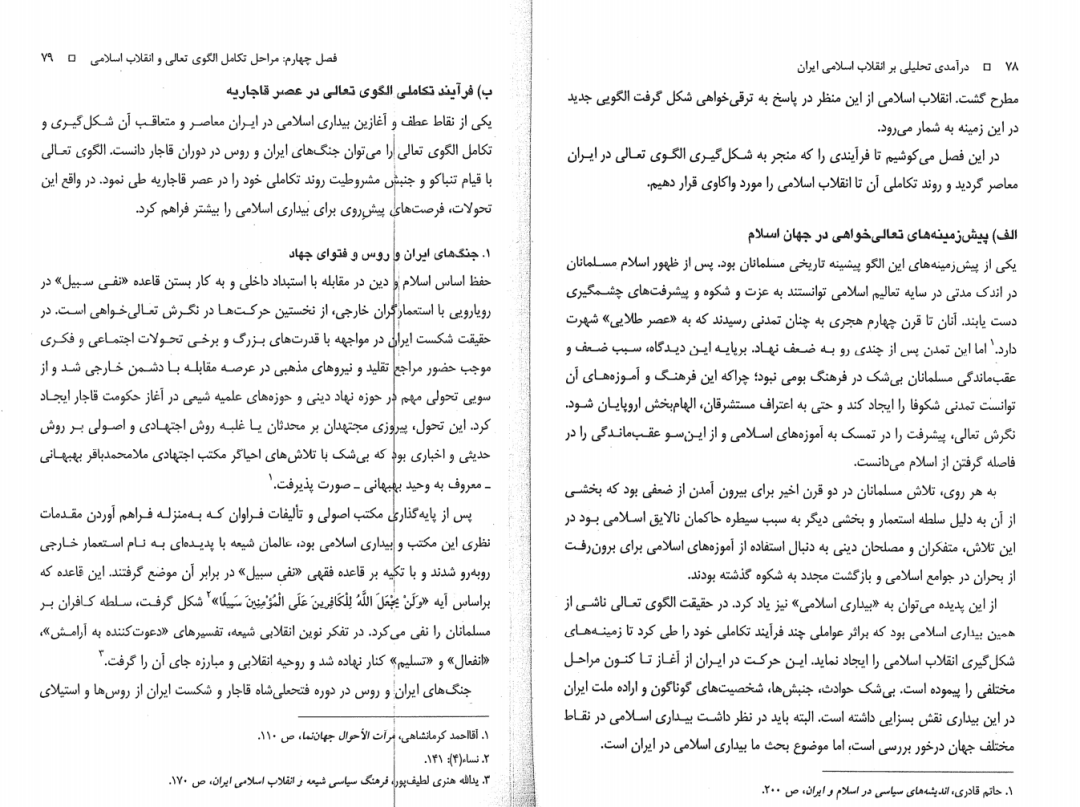 ۷۸ □ درآمدی تحلیلی بر انقلاب اسلامی ایران
مطرح گشت. انقلاب اسلامی از این منظر در پاسخ به ترقی‌خواهی شکل گرفت الگویی جدید
در این زمینه به شمار می‌رود.
در این فصل می‌کوشیم تا فرآیندی را که منجر به شکل‌گیری الگوی تعالی در ایران
معاصر گردید و روند تکاملی آن تا انقلاب اسلامی را مورد واکاوی قرار دهیم.
الف) پیش‌زمینه‌های تعالی‌خواهی در جهان اسلام
یکی از پیش‌زمینه‌های این الگو پیشینه تاریخی مسلمانان بود. پس از ظهور اسلام مسلمانان
در اندک مدتی در سایه تعالیم اسلامی توانستند به عزت و شکوه و پیشرفت‌های چشمگیری
دست یابند. آنان تا قرن چهارم هجری به چنان تمدنی رسیدند که به «عصر طلایی» شهرت
دارد.۱ اما این تمدن پس از چندی رو به ضعف نهاد. برپایه این دیدگاه، سبب ضعف و
عقب‌ماندگی مسلمانان بی‌شک در فرهنگ بومی نبود؛ چراکه این فرهنگ و آموزه‌های آن
توانست تمدنی شکوفا را ایجاد کند و حتی به اعتراف مستشرقان، الهام‌بخش اروپایان شود.
نگرش تعالی، پیشرفت را در تمسک به آموزه‌های اسلامی و از این‌سو عقب‌ماندگی را در
فاصله گرفتن از اسلام می‌دانست.
به هر روی، تلاش مسلمانان در دو قرن اخیر برای بیرون آمدن از ضعفی بود که بخشی
از آن به دلیل سلطه استعمار و بخشی دیگر به سبب سیطره حاکمان نالایق اسلامی بود در
این تلاش، متفکران و مصلحان دینی به دنبال استفاده از آموزه‌های اسلامی برای برون‌رفت
از بحران در جوامع اسلامی و بازگشت مجدد به شکوه گذشته بودند.
از این پدیده می‌توان به «بیداری اسلامی» نیز یاد کرد. در حقیقت الگوی تعالی ناشی از
همین بیداری اسلامی بود که براثر عواملی چند فرآیند تکاملی خود را طی کرد تا زمینه‌های
شکل‌گیری انقلاب اسلامی را ایجاد نماید. این حرکت در ایران از آغاز تا کنون مراحل
مختلفی را پیموده است. بی‌شک حوادث، جنبش‌ها، شخصیت‌های گوناگون و اراده ملت ایران
در این بیداری نقش بسزایی داشته است. البته باید در نظر داشت بیداری اسلامی در نقاط
مختلف جهان درخور بررسی است، اما موضوع بحث ما بیداری اسلامی در ایران است.
۱. حاتم قادری، اندیشه‌های سیاسی در اسلام و ایران، ص ۲۰۰.
فصل چهارم: مراحل تکامل الگوی تعالی و انقلاب اسلامی □ ۷۹
ب) فرآیند تکاملی الگوی تعالی در عصر قاجاریه
یکی از نقاط عطف و آغازین بیداری اسلامی در ایران معاصر و متعاقب آن شکل‌گیری و
تکامل الگوی تعالی را می‌توان جنگ‌های ایران و روس در دوران قاجار دانست. الگوی تعالی
با قیام تنباکو و جنبش مشروطیت روند تکاملی خود را در عصر قاجاریه طی نمود. در واقع این
تحولات، فرصت‌های پیش‌روی برای بیداری اسلامی را بیشتر فراهم کرد.
۱. جنگ‌های ایران و روس و فتوای جهاد
حفظ اساس اسلام و دین در مقابله با استبداد داخلی و به کار بستن قاعده «نفی سبیل» در
رویارویی با استعمارگران خارجی، از نخستین حرکت‌ها در نگرش تعالی‌خواهی است. در
حقیقت شکست ایران در مواجهه با قدرت‌های بزرگ و برخی تحولات اجتماعی و فکری
موجب حضور مراجع تقلید و نیروهای مذهبی در عرصه مقابله با دشمن خارجی شد و از
سویی تحولی مهم در حوزه نهاد دینی و حوزه‌های علمیه شیعی در آغاز حکومت قاجار ایجاد
کرد. این تحول، پیروزی مجتهدان بر محدثان یا غلبه روش اجتهادی و اصولی بر روش
حدیثی و اخباری بود که بی‌شک با تلاش‌های احیاگر مکتب اجتهادی ملامحمدباقر بهبهانی
ـ معروف به وحید بهبهانی ـ صورت پذیرفت.۱
پس از پایه‌گذاری مکتب اصولی و تألیفات فراوان که به‌منزله فراهم آوردن مقدمات
نظری این مکتب و بیداری اسلامی بود، عالمان شیعه با پدیده‌ای به نام استعمار خارجی
روبه‌رو شدند و با تکیه بر قاعده فقهی «نفی سبیل» در برابر آن موضع گرفتند. این قاعده که
براساس آیه «وَلَنْ يَجْعَلَ اللَّهُ لِلْكَافِرِينَ عَلَى الْمُؤْمِنِينَ سَبِيلًا»۲ شکل گرفت، سلطه کافران بر
مسلمانان را نفی می‌کرد. در تفکر نوین انقلابی شیعه، تفسیرهای «دعوت‌کننده به آرامش»،
«انفعال» و «تسلیم» کنار نهاده شد و روحیه انقلابی و مبارزه جای آن را گرفت.۳
جنگ‌های ایران و روس در دوره فتحعلی‌شاه قاجار و شکست ایران از روس‌ها و استیلای
۱. آقااحمد کرمانشاهی، مرآت الأحوال جهان‌نما، ص ۱۱۰.
۲. نساء(۴): ۱۴۱.
۳. یدالله هنری لطیف‌پور، فرهنگ سیاسی شیعه و انقلاب اسلامی ایران، ص ۱۷۰.